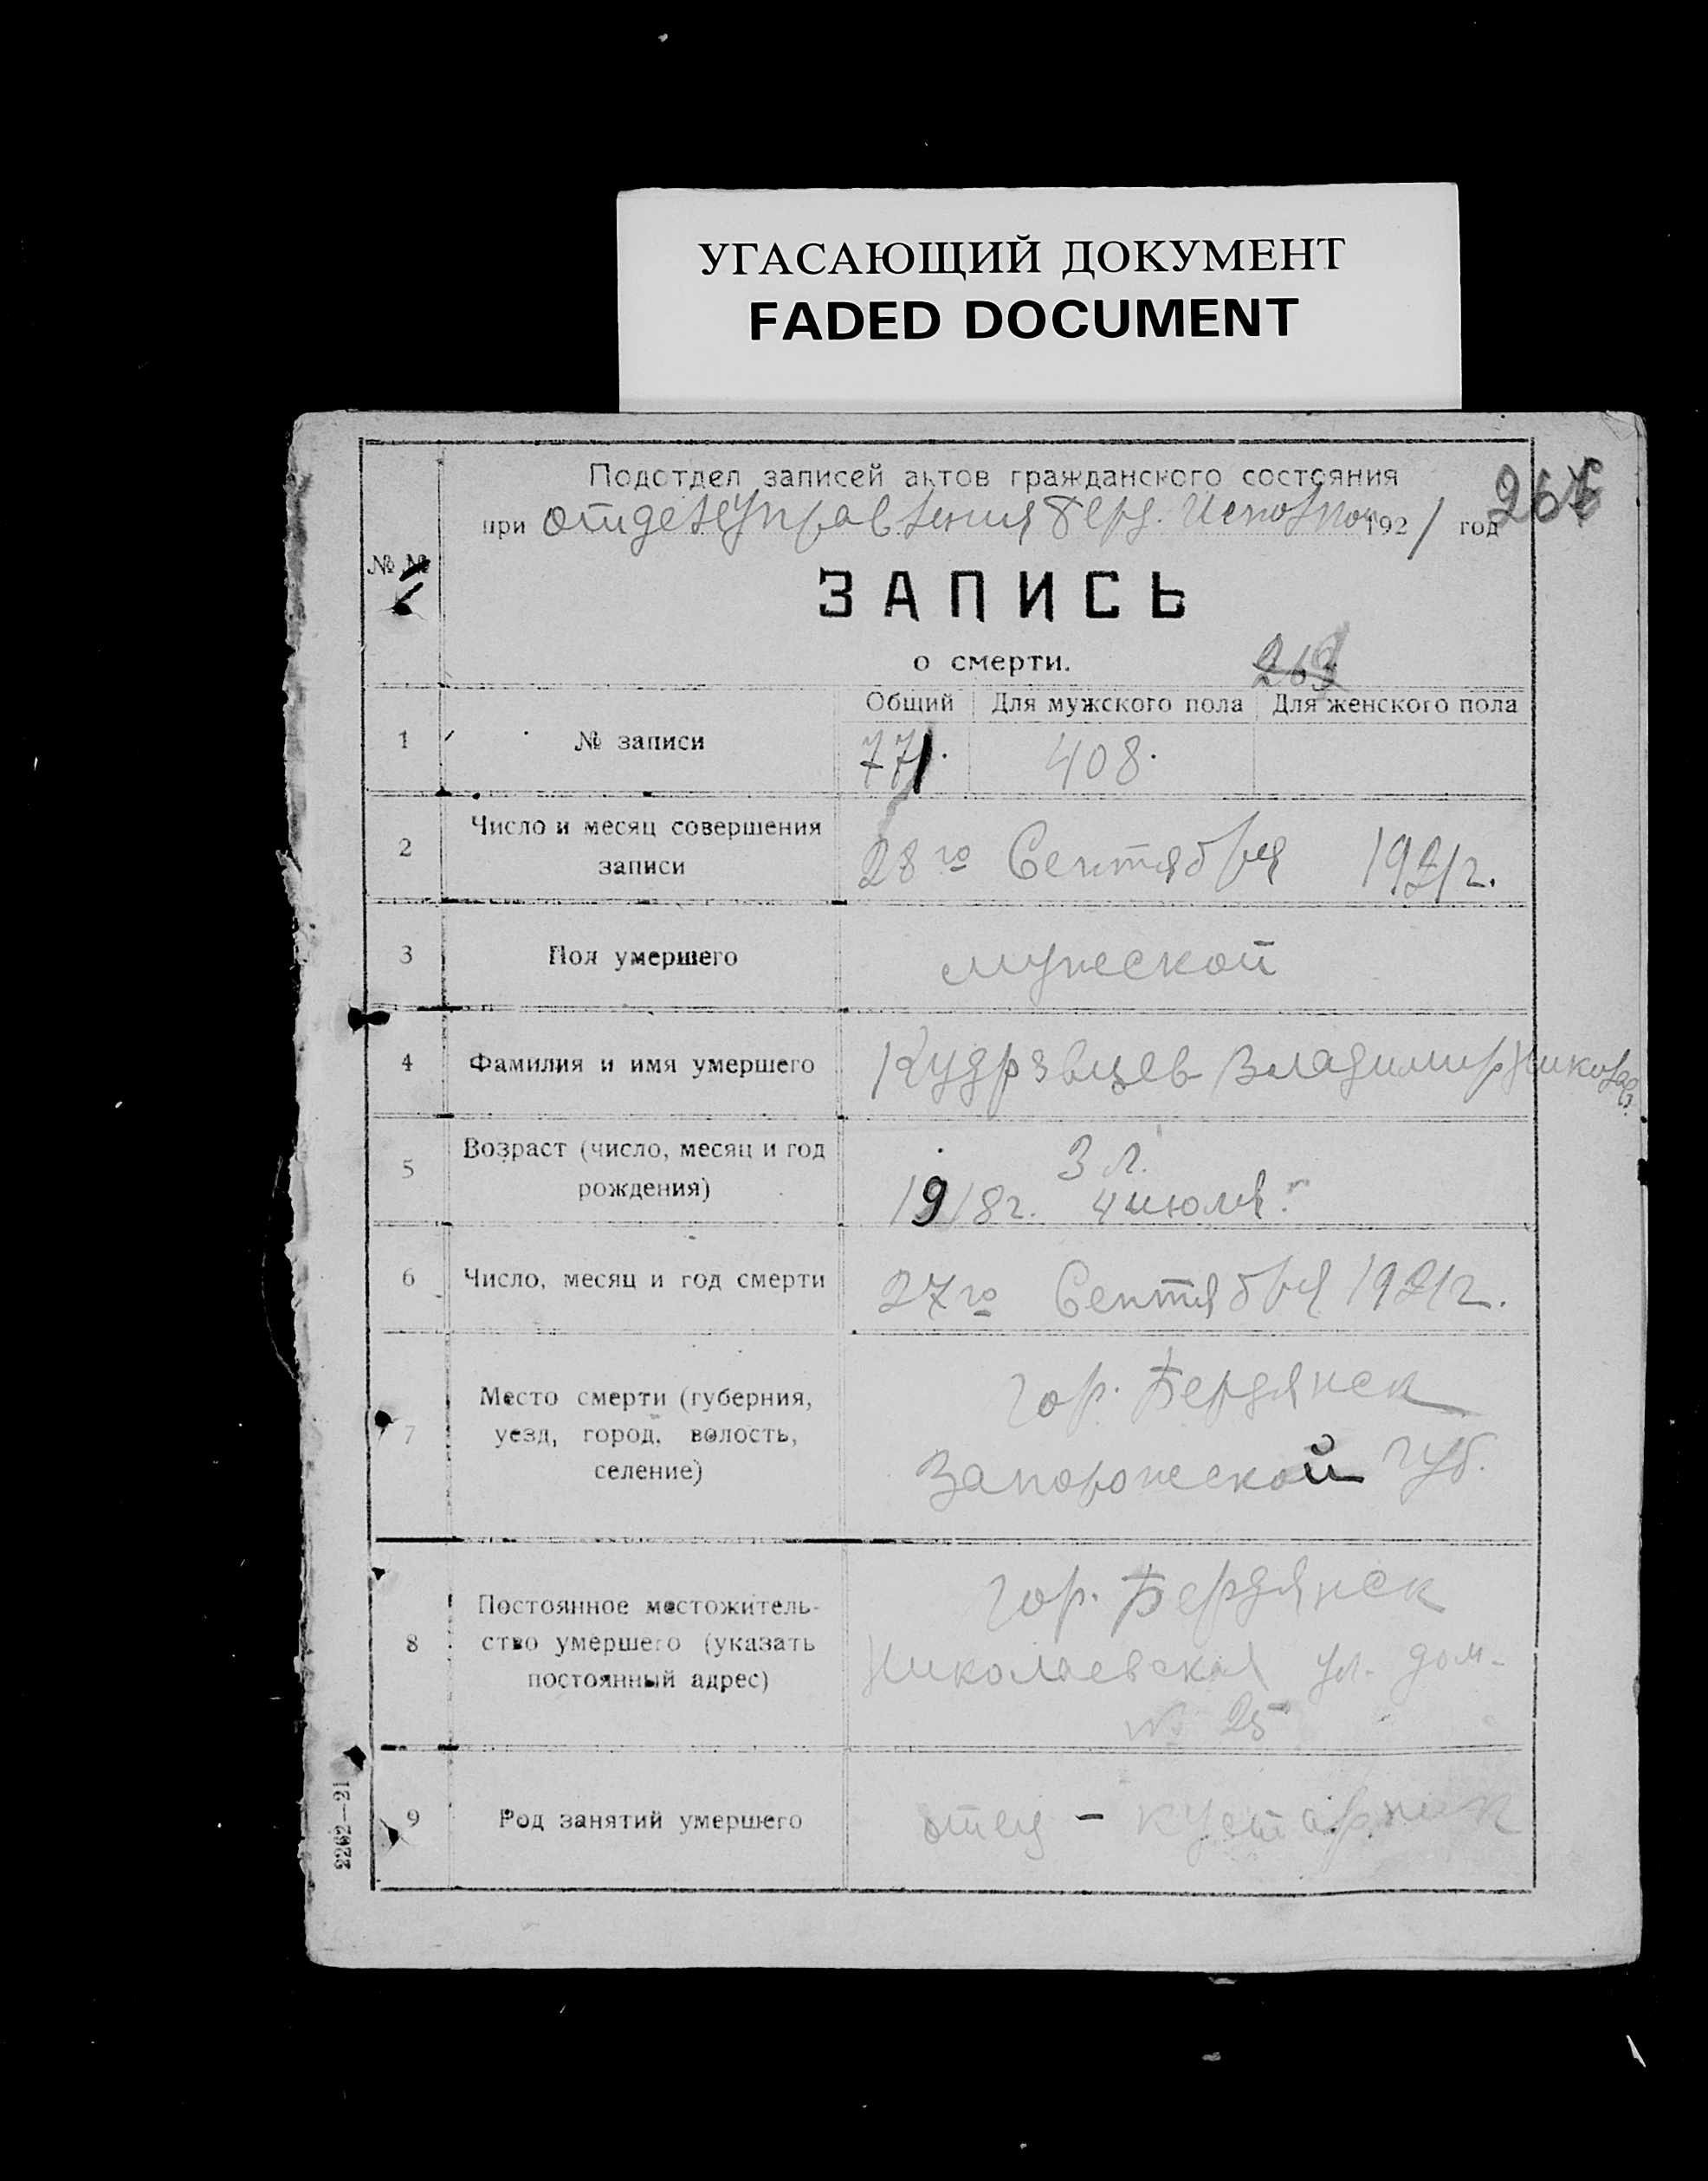 УГАСАЮЩИЙ ДОКУМЕНТ
FADED DOCUMENT
Подотдел записей актов гражданского состояния
при отделеуправления Берд. Исполком 1921 год
266
№ №
ЗАПИСЬ
о смерти.
263
Общий Для мужского пола Для женского пола
1 № записи 771. 408.
2 Число и месяц совершения
записи
28го Сентября 1921г.
3 Пол умершего мужеской
4 Фамилия и имя умершего Кудрявцев Владимир Николаев.
5 Возраст (число, месяц и год
рождения)
3 л.
1918г. 4 июля.
6 Число, месяц и год смерти 27го Сентября 1921г.
7 Место смерти (губерния,
уезд, город, волость,
селение)
гор. Бердянск
Запорожеской губ.
8 Постоянное местожитель-
ство умершего (указать
постоянный адрес)
гор. Бердянск
Николаевская ул. дом-
№ 25
9 Род занятий умершего отец - кустарник
2262—21